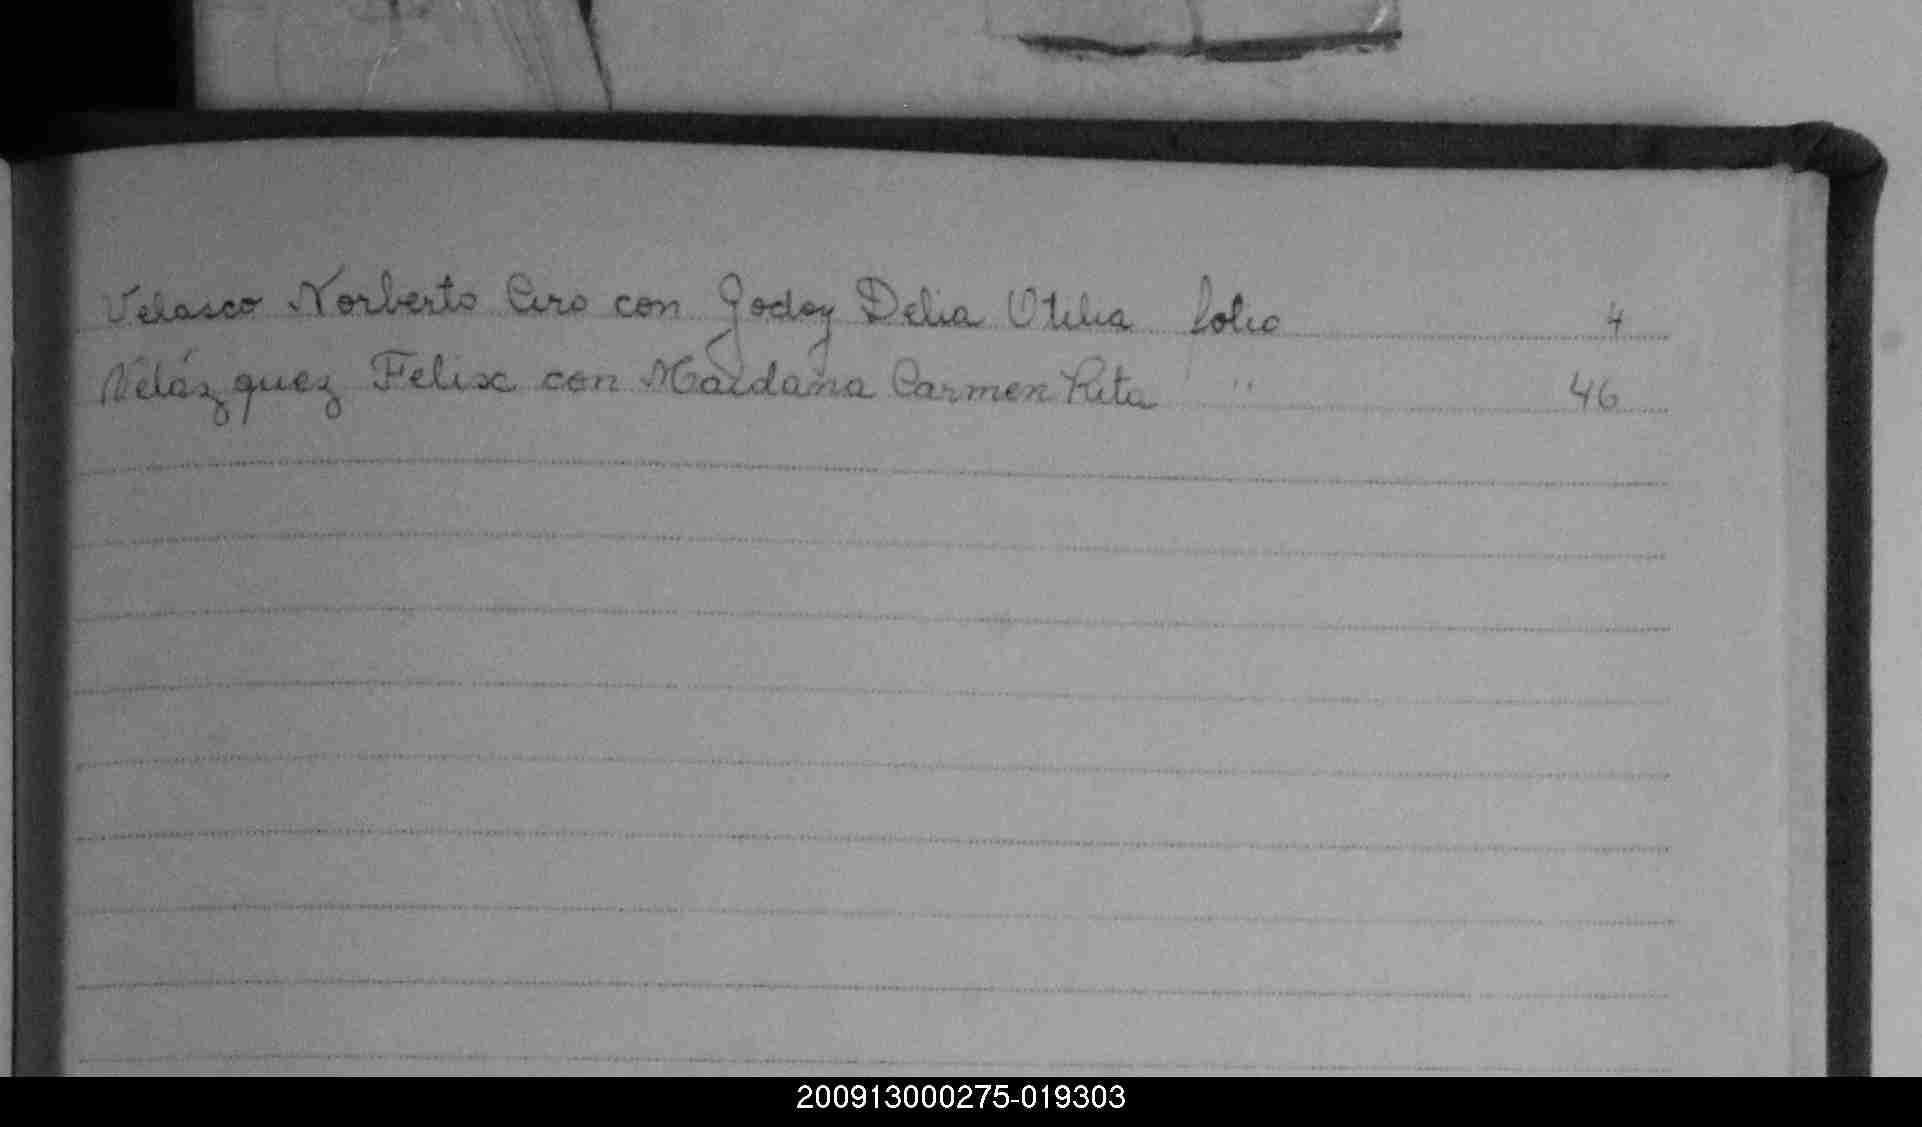 Velasco Norberto Ciro con Godoy Delia Otilia folio 4
Velázquez Felix con Maidana Carmen Rita " 46
200913000275-019303